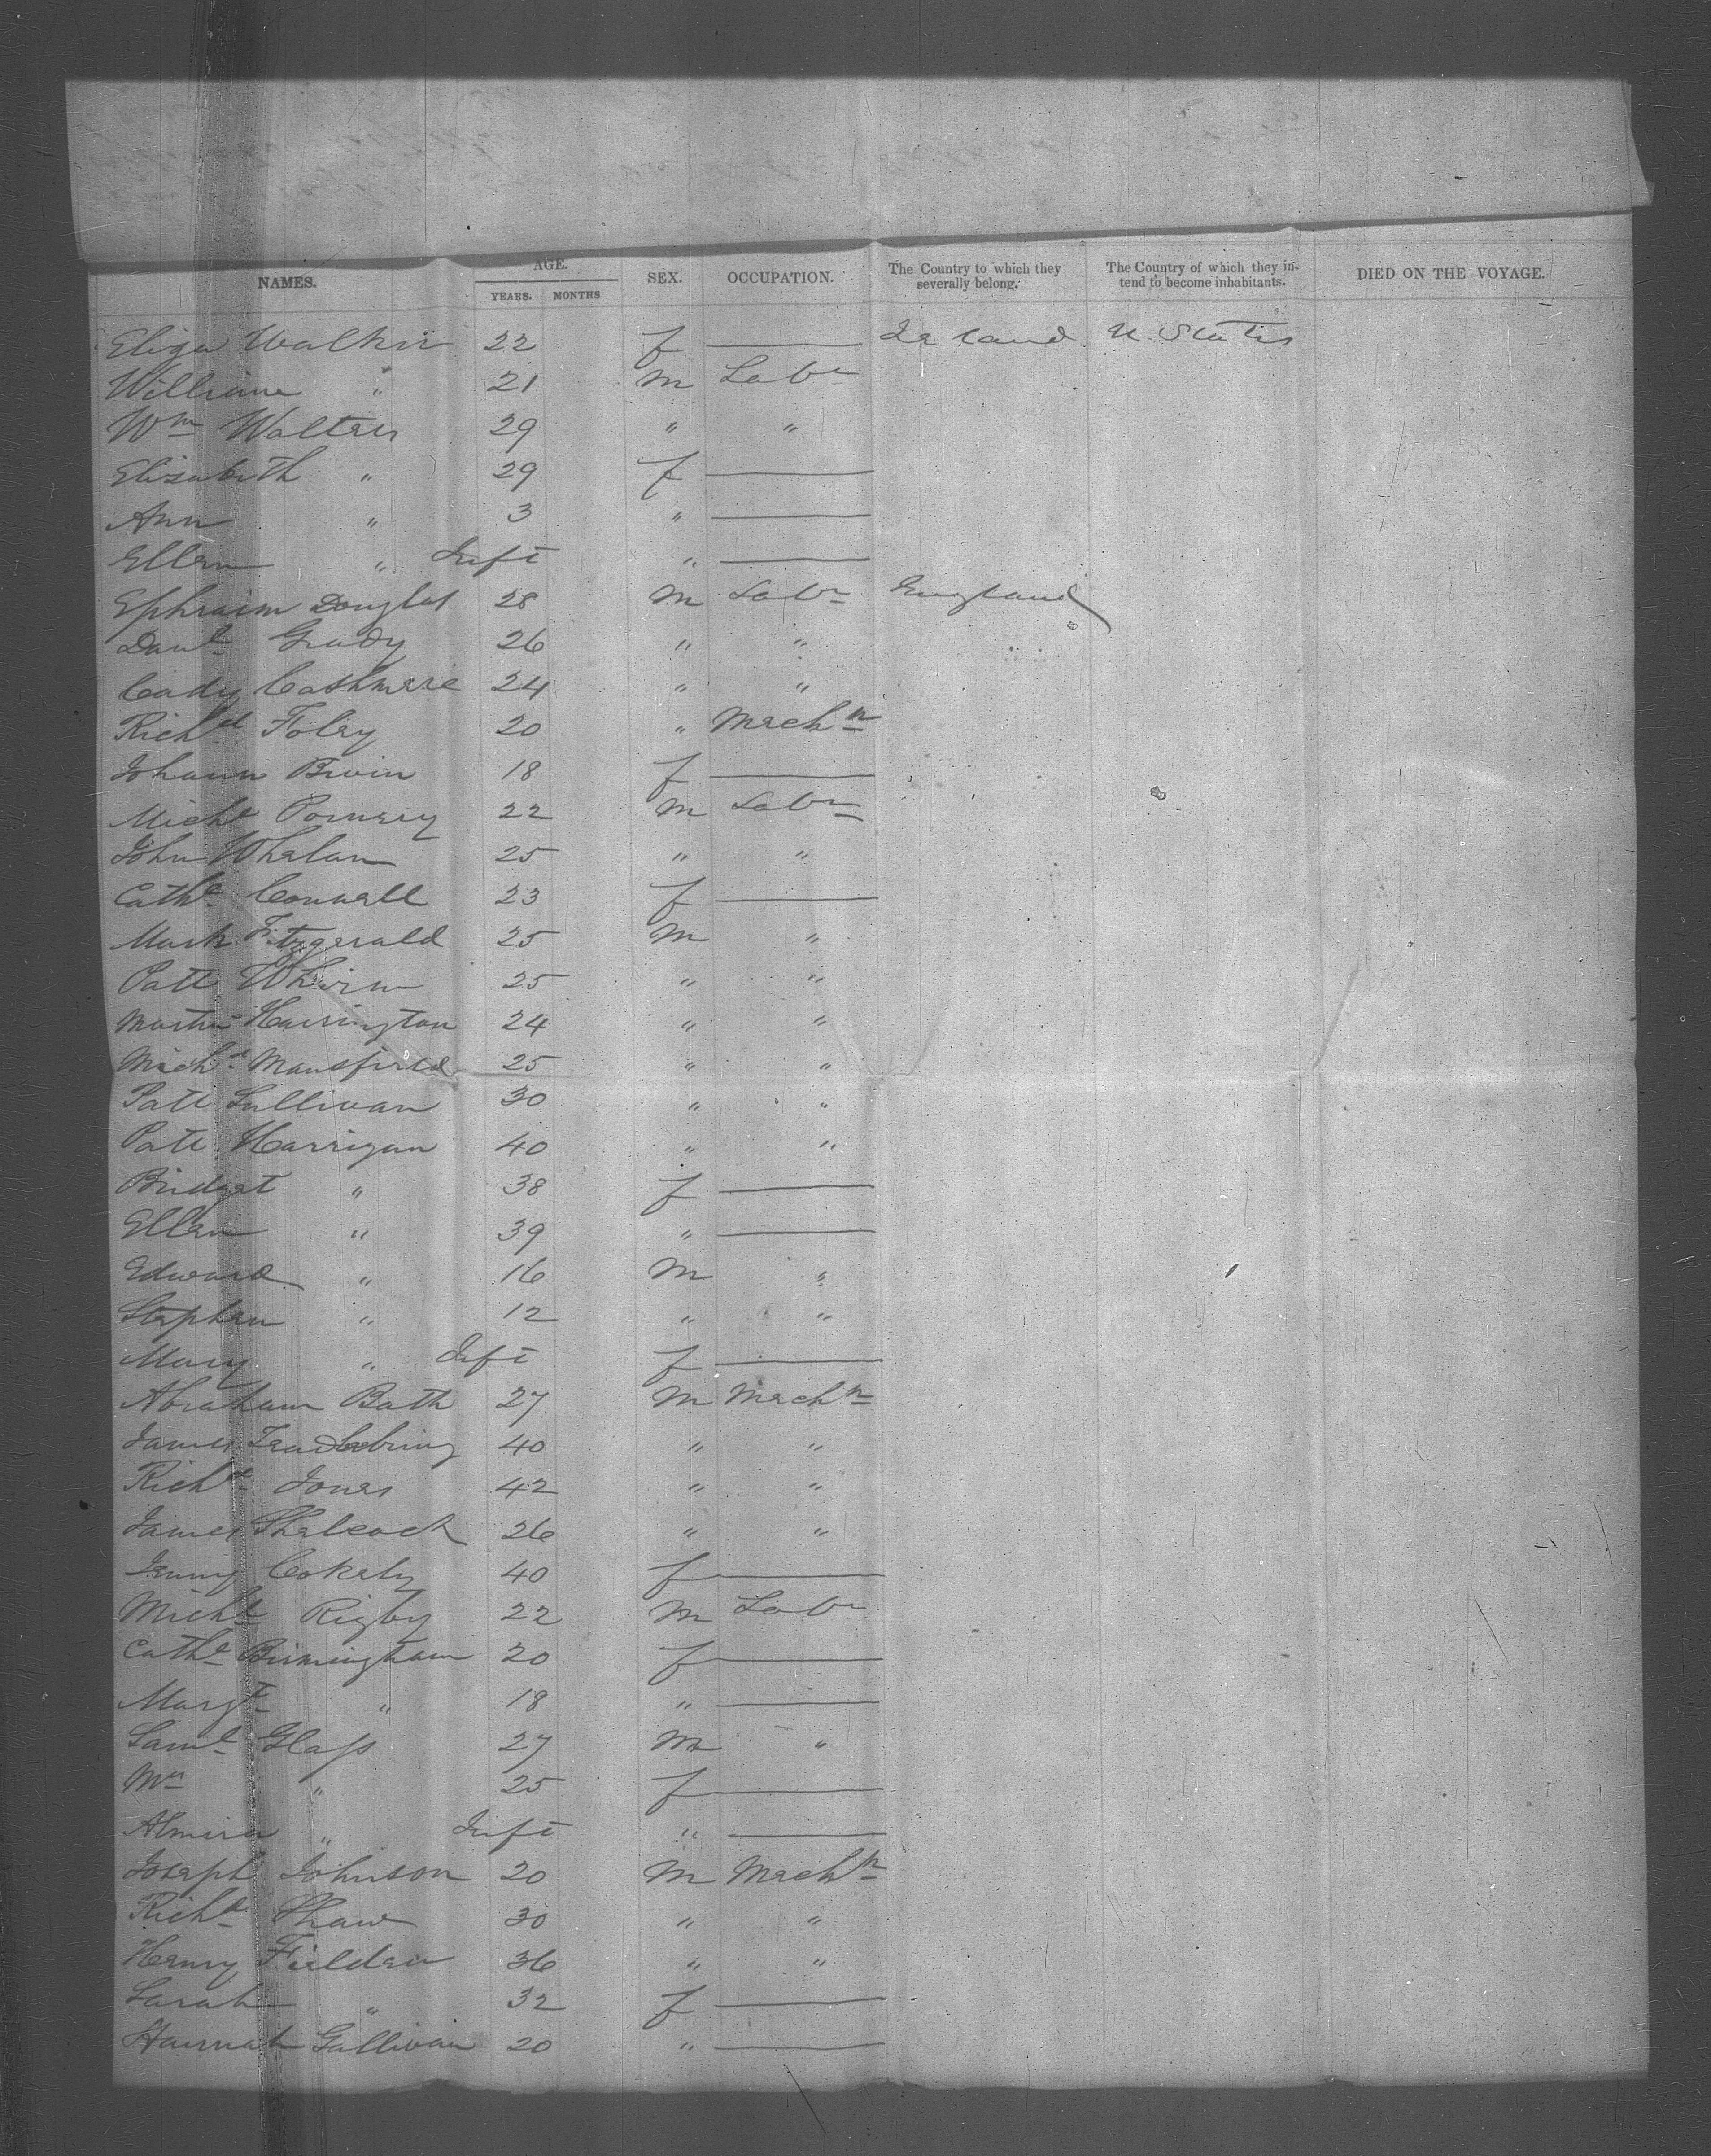 NAMES. AGE. YEARS. MONTHS SEX. OCCUPATION. The Country to which they severally belong. The Country of which they intend to become inhabitants. DIED ON THE VOYAGE.
Eliza Walker 22 f —— Ireland U. States
William " 21 m Labr
Wm Walters 29 " "
Elizabeth " 29 f ——
Ann " 3 " ——
Ellen " Inft " ——
Ephraim Douglas 28 m Labr England
Danl Grady 26 " "
Cady Cashmere 24 " "
Richd Foley 20 " Mechn
Johann 18 f ——
Michl 22 m Labr
John Whelan 25 " "
Cathe Connell 23 f ——
Mark Fitzgerald 25 m "
Patt 25 " "
Martin Harrington 24 " "
Michl Mansfield 25 " "
Patt Sullivan 30 " "
Patt Harrigan 40 " "
Bridget " 38 f ——
Ellen " 39 " ——
Edward " 16 m "
Stephen " 12 " "
Mary " Inft f ——
Abraham Bath 27 m Mechn
James 40 " "
Richd Jones 42 " "
James 26 " "
Jenny 40 f ——
Michl Rigby 22 m Labr
Cathe Birmingham 20 f ——
Margt " 18 " ——
Saml Glass 27 m "
Mrs " 25 f ——
Almira " Inft " ——
Joseph Johnson 20 m Mechn
Richd Shaw 30 " "
Henry Fielden 36 " "
Sarah " 32 f ——
Hannah Gallivan 20 " ——